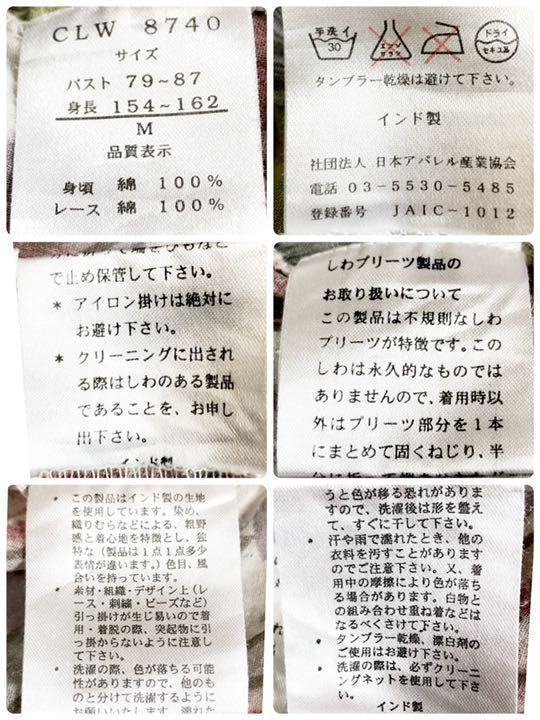 CLW 8740
サイズ
バスト 79~87
身長 154~162
M
品質表示
身頃 綿 100%
レース 綿 100%
手洗イ
30
エンソ
サラシ
ドライ
セキユ系
タンブラー乾燥は避けて下さい。
インド製
社団法人 日本アパレル産業協会
電話 03-5530-5485
登録番号 JAIC-1012
で止め保管して下さい。
* アイロン掛けは絶対に
お避け下さい。
* クリーニングに出され
る際はしわのある製品
であることを、お申し
出下さい。
インド製
しわプリーツ製品の
お取り扱いについて
この製品は不規則なしわ
プリーツが特徴です。この
しわは永久的なものでは
ありませんので、着用時以
外はプリーツ部分を1本
にまとめて固くねじり、半
• この製品はインド製の生地
を使用しています。染め、
織りむらなどによる、粗野
感と着心地を特徴とし、独
特な(製品は1点1点多少
表情が違います。)色目、風
合いを持っています。
• 素材・組織・デザイン上(レ
ース・刺繍・ビーズなど)
引っ掛けが生じ易いので着
用・着脱の際、突起物に引
っ掛からないように注意し
て下さい。
• 洗濯の際、色が落ちる可能
性がありますので、他のも
のと分けて洗濯するように
お願いいたします。濡れた
うと色が移る恐れがありま
すので、洗濯後は形を整え
て、すぐに干して下さい。
• 汗や雨で濡れたとき、他の
衣料を汚すことがあります
のでご注意下さい。又、着
用中の摩擦により色が落ち
る場合があります。白物と
の組み合わせ重ね着などは
なるべくさけて下さい。
• タンブラー乾燥、漂白剤の
ご使用はお避け下さい。
• 洗濯の際は、必ずクリーニ
ングネットを使用して下さ
い。
インド製